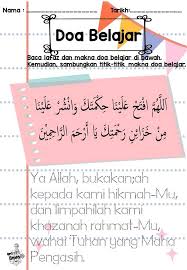 Nama : Tarikh:
Doa Belajar
Baca lafaz dan makna doa belajar di bawah.
Kemudian, sambungkan titik-titik makna doa belajar.
اَللّٰهُمَّ افْتَحْ عَلَيْنَا حِكْمَتَكَ وَانْشُرْ عَلَيْنَا
مِنْ خَزَائِنِ رَحْمَتِكَ يَا أَرْحَمَ الرَّاحِمِيْنَ
Ya Allah, bukakanlah
kepada kami hikmah-Mu,
dan limpahilah kami
khazanah rahmat-Mu,
wahai Tuhan yang Maha
Pengasih.